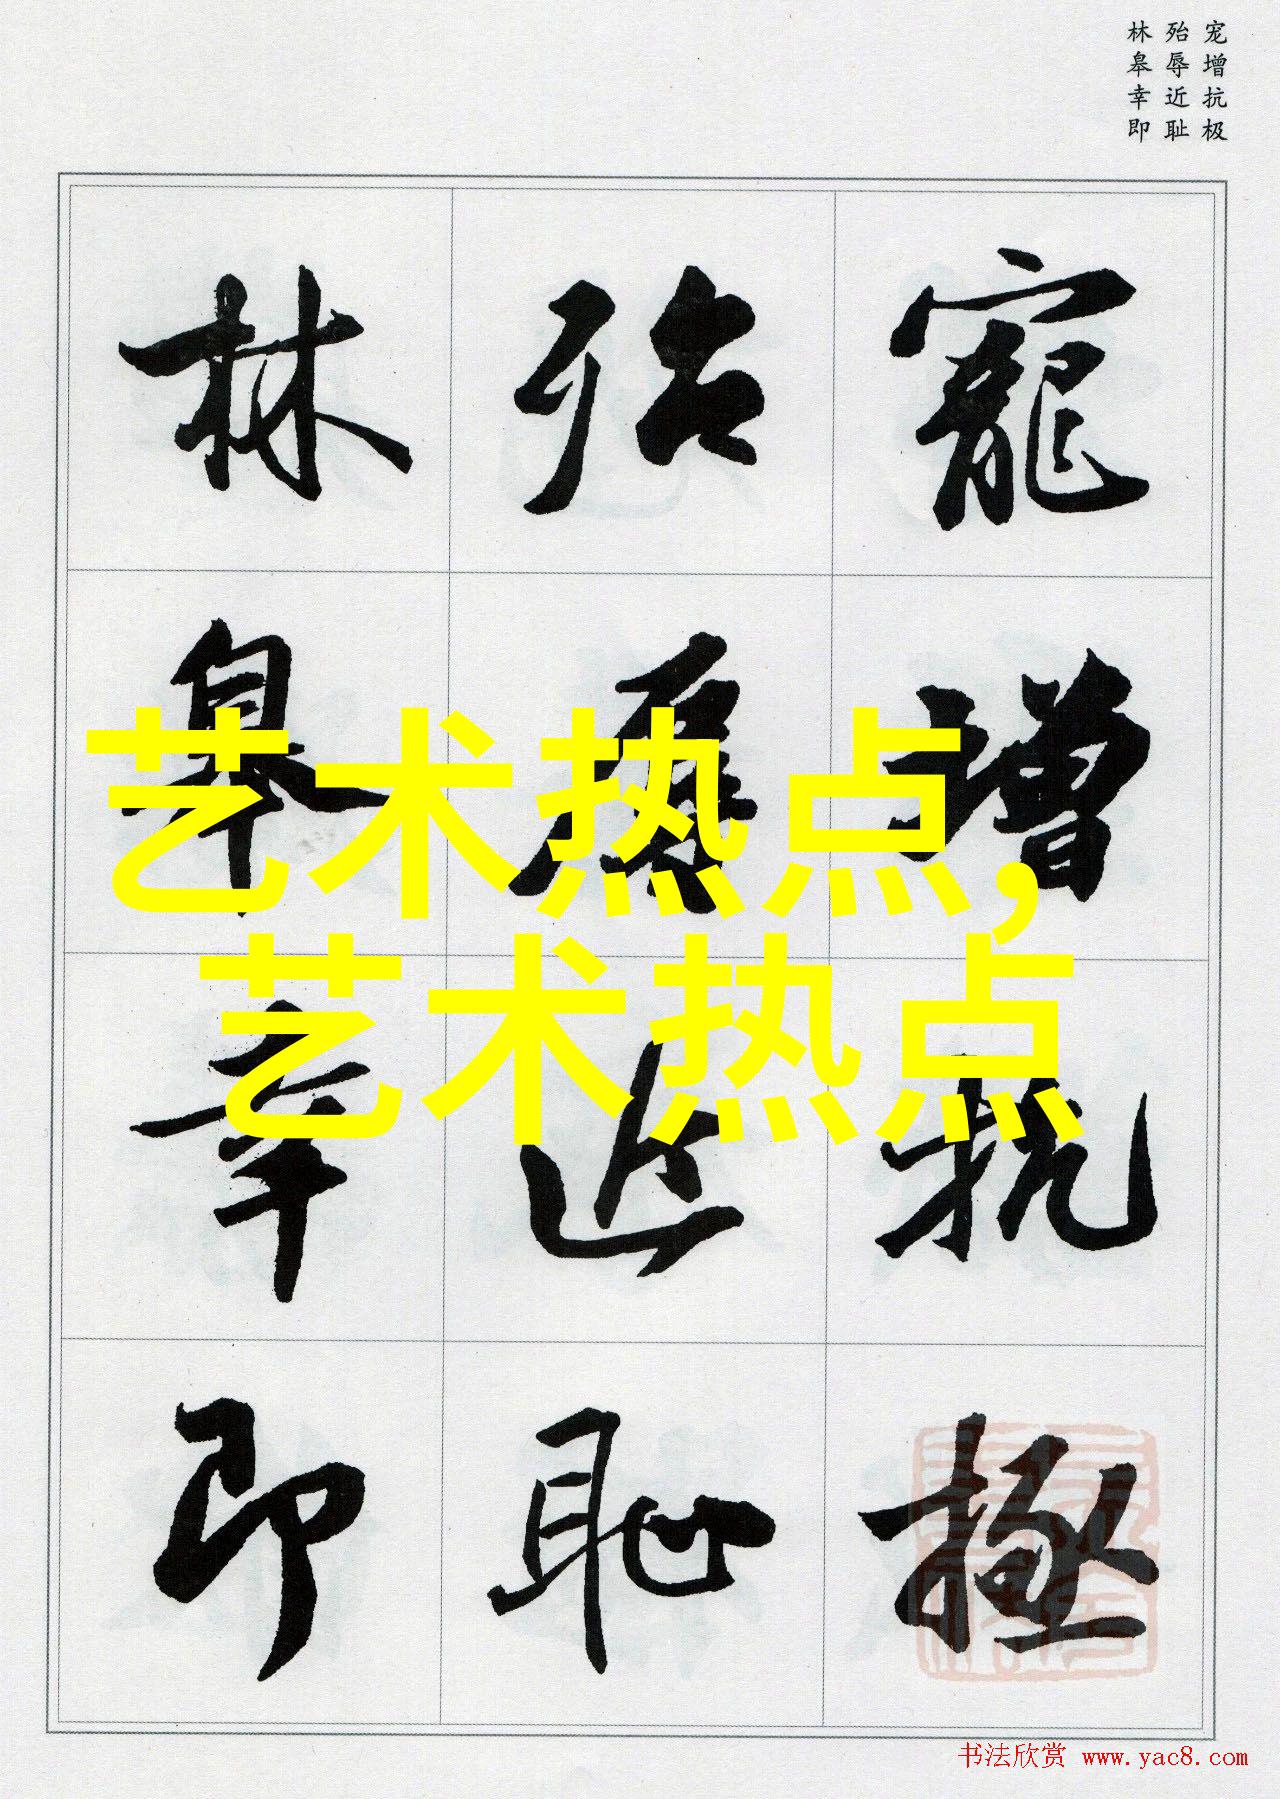 宠增抗极
殆辱近耻
林皋幸即
寵增抗極
殆辱近恥
林皋幸即
艺术热点,
艺术热点
书法欣赏 www.yac8.com